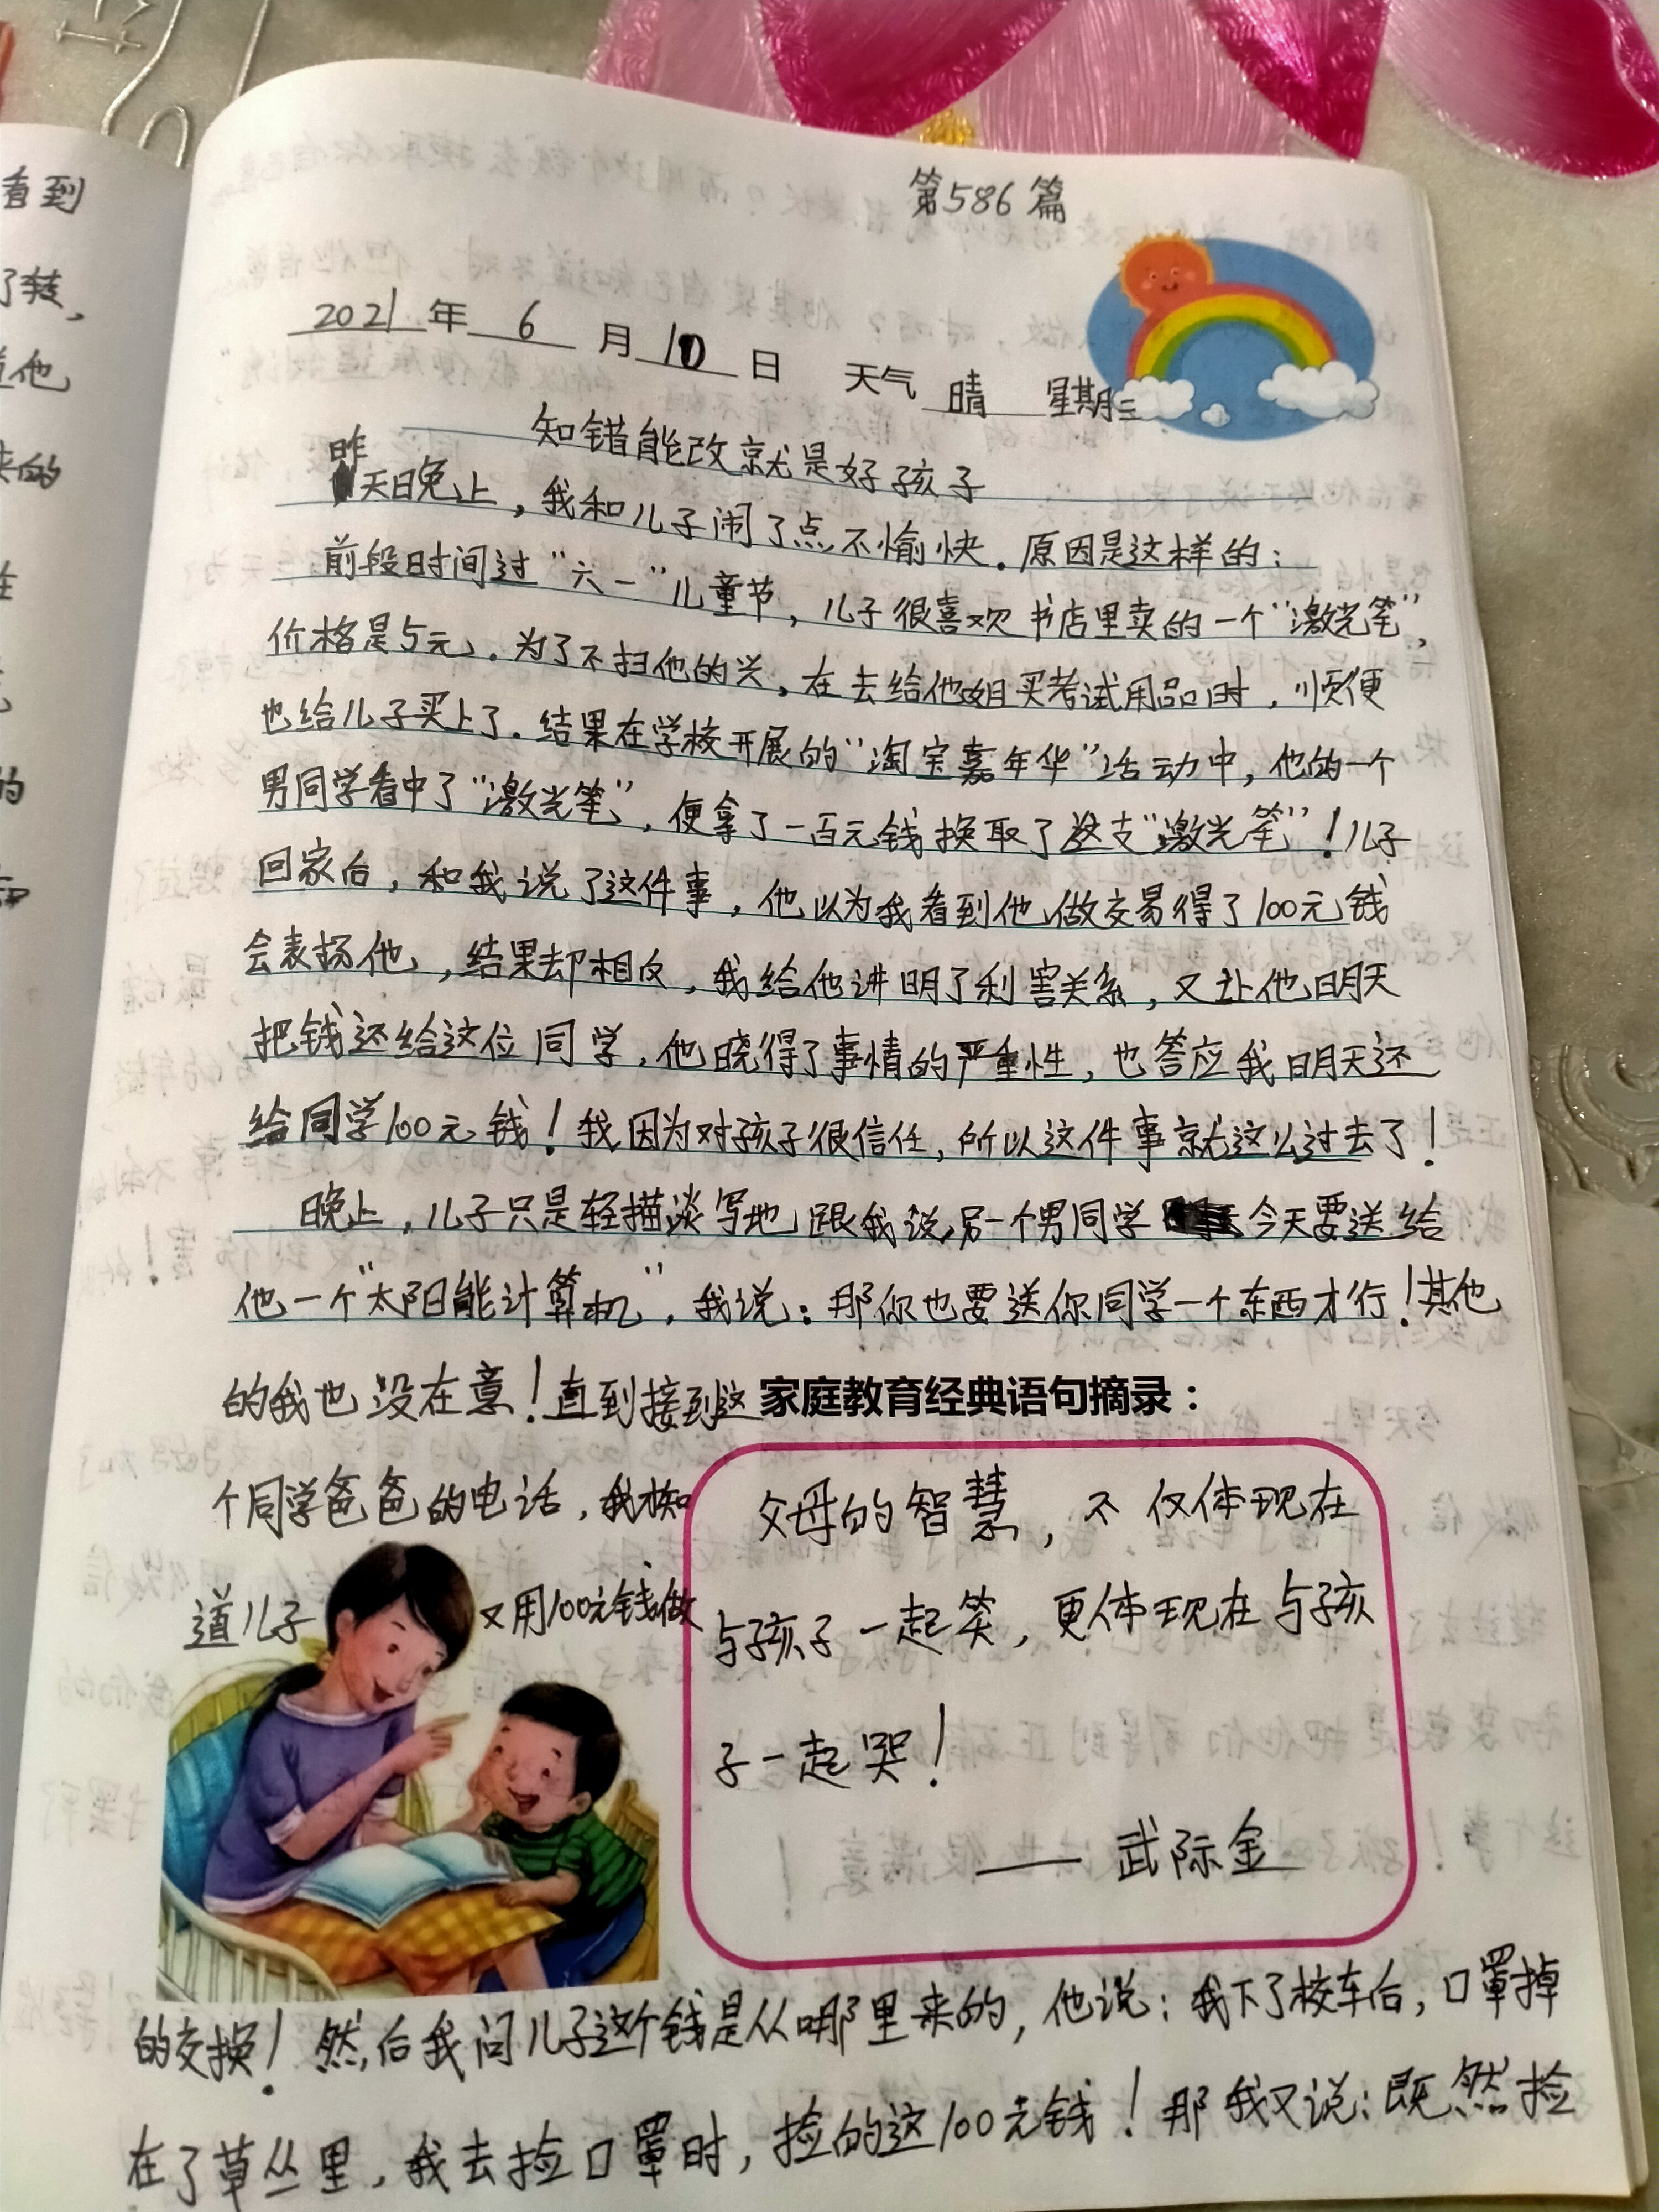 第586篇
2021年 6 月 10 日 天气 晴 星期三
知错能改就是好孩子
昨天晚上，我和儿子闹了点不愉快。原因是这样的：
前段时间过“六一”儿童节，儿子很喜欢书店里卖的一个“激光笔”，
价格是5元。为了不扫他的兴，在去给他姐买考试用品时，顺便
也给儿子买上了。结果在学校开展的“淘宝嘉年华”活动中，他的一个
男同学看中了“激光笔”，便拿了一百元钱换取了这支“激光笔”！儿子
回家后，和我说了这件事，他以为我看到他做交易得了100元钱
会表扬他，结果却相反，我给他讲明了利害关系，又让他明天
把钱还给这位同学，他晓得了事情的严重性，也答应我明天还
给同学100元钱！我因为对孩子很信任，所以这件事就这么过去了！
晚上，儿子只是轻描淡写地跟我说另一个男同学今天要送给
他一个“太阳能计算机”，我说：那你也要送你同学一个东西才行！其他
的我也没在意！直到接到这
家庭教育经典语句摘录：
个同学爸爸的电话，我才知
道儿子又用100元钱做
父母的智慧，不仅体现在
与孩子一起笑，更体现在与孩
子一起哭！
—— 武际金
的交换！然后我问儿子这个钱是从哪里来的，他说：我下了校车后，口罩掉
在了草丛里，我去捡口罩时，捡的这100元钱！那我又说：既然捡
看到
了转，
他
来的
在
的